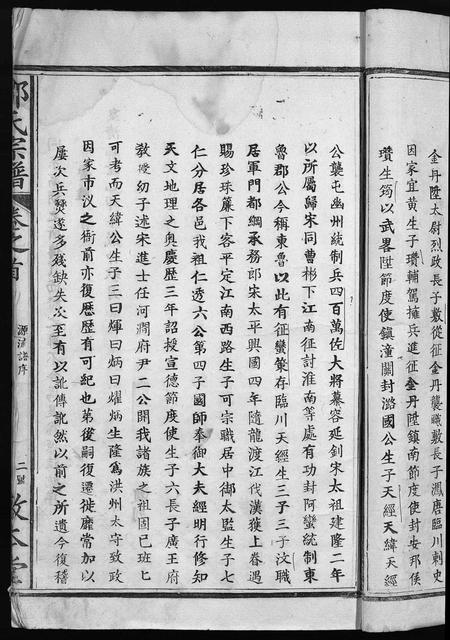 金丹陞太尉烈政長子敷從征金丹襲職敷長子澷唐臨川刺史
因家宜黃生子瓚輔駕擁兵進征金丹陞鎮南節度使封安邦侯
瓚生筠以武畧陞節度使鎮潼關封潞國公生子天經天緯天經
公襲屯幽州統制兵四百萬佐大將慕容延釗宋太祖建隆二年
以所屬歸宋同曹彬下江南征討淮南等處有功封阿蠻統制東
魯郡公今稱東魯以此有征蠻策存臨川天經生三子三子汶職
居軍門都綱承務郎宋太平興國四年隨龍渡江伐漢獲上眷遇
賜珍珠簾下客平定江南西路生子可宗職居中御太監生子七
仁分居各邑我祖仁透六公第四子國師奉御大夫經明行修知
天文地理之奧慶歷三年詔授宣德節度使生子六長子廣王府
教授幼子述宋進士任河澗府尹二公開我諸族之祖固已班匕
可考而天緯公生子三曰輝曰炳曰燿炳生隆爲洪州太守致政
因家市汊之衙前亦復歷歷有可紀也苐後嗣復遷徙靡常加以
屢次兵燹遂多殘缺失次至有以訛傳訛然以前之所遺今復稽
氏宗譜
卷之首
源流譜序
二